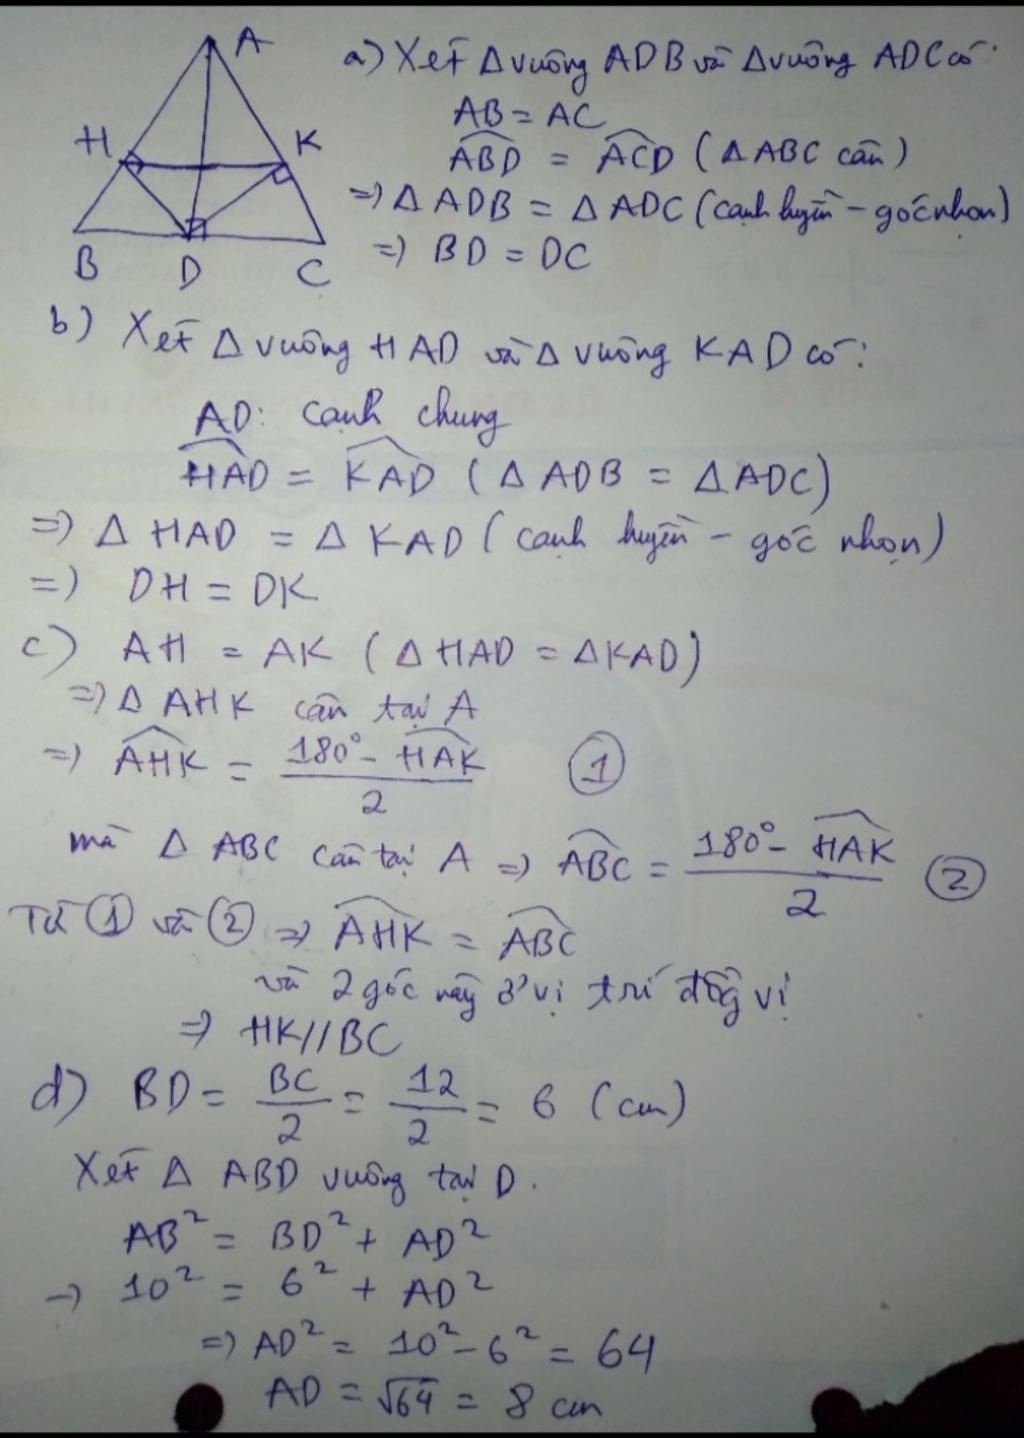 A
H
K
B D C
a) Xét Δ vuông ADB và Δ vuông ADC có:
AB = AC
ABD̂ = ACD̂ (Δ ABC cân)
=> Δ ADB = Δ ADC (cạnh huyền - góc nhọn)
=> BD = DC
b) Xét Δ vuông HAD và Δ vuông KAD có:
AD: cạnh chung
HAD̂ = KAD̂ (Δ ADB = Δ ADC)
=> Δ HAD = Δ KAD (cạnh huyền - góc nhọn)
=> DH = DK
c) AH = AK (Δ HAD = Δ KAD)
=> Δ AHK cân tại A
=> AHK̂ = (180° - HAK̂)/2 ①
mà Δ ABC cân tại A => ABĈ = (180° - HAK̂)/2 ②
Từ ① và ② => AHK̂ = ABĈ
và 2 góc này ở vị trí đồng vị
=> HK//BC
d) BD = BC/2 = 12/2 = 6 (cm)
Xét Δ ABD vuông tại D.
AB² = BD² + AD²
→ 10² = 6² + AD²
=> AD² = 10² - 6² = 64
AD = √64 = 8 cm